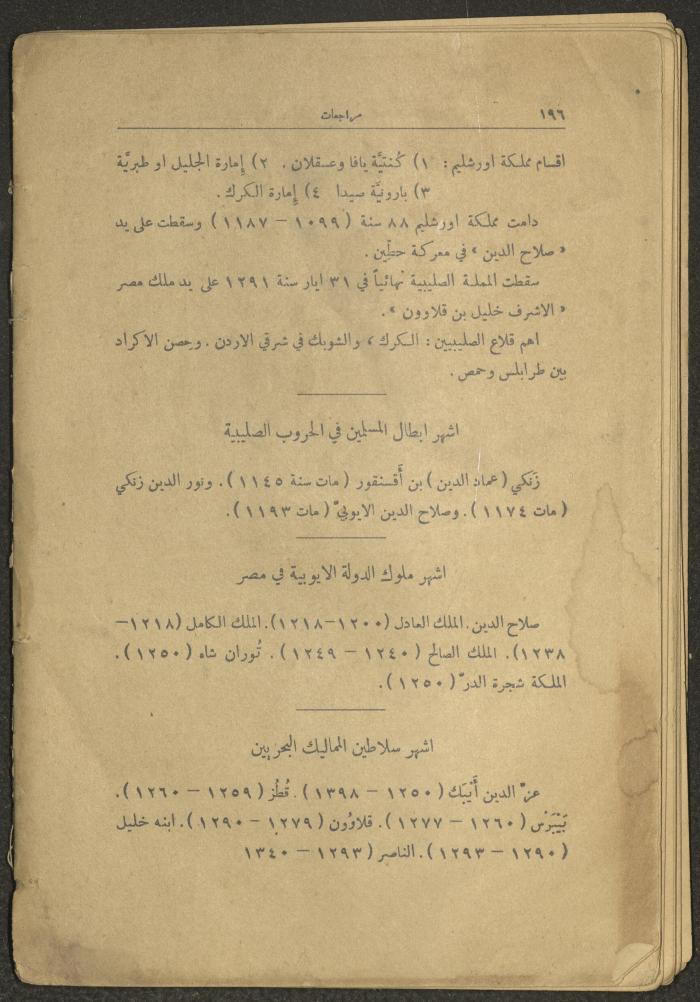 ١٩٦
مراجعات
اقسام مملكة اورشليم : ١) كُنتيَّة يافا وعسقلان . ٢) إمارة الجليل او طبريَّة
٣) بارونيَّة صيدا ٤) إمارة الكرك .
دامت مملكة اورشليم ٨٨ سنة (١٠٩٩ — ١١٨٧) وسقطت على يد
« صلاح الدين » في معركة حطّين .
سقطت المملة الصليبية نهائياً في ٣١ ايار سنة ١٢٩١ على يد ملك مصر
« الاشرف خليل بن قلاوون » .
اهم قلاع الصليبيين : الكرك ، والشوبك في شرقي الاردن . وحصن الاكراد
بين طرابلس وحمص .
اشهر ابطال المسلمين في الحروب الصليبية
زَنكي (عماد الدين) بن أقسنقور (مات سنة ١١٤٥) . ونور الدين زنكي
(مات ١١٧٤) . وصلاح الدين الايوبيّ (مات ١١٩٣) .
اشهر ملوك الدولة الايوبية في مصر
صلاح الدين . الملك العادل (١٢٠٠—١٢١٨) . الملك الكامل (١٢١٨—
١٢٣٨) . الملك الصالح (١٢٤٠ — ١٢٤٩) . تُوران شاه (١٢٥٠) .
الملكة شجرة الدرّ (١٢٥٠) .
اشهر سلاطين المماليك البحريين
عزّ الدين أَيْبَك (١٢٥٠ — ١٣٩٨) . قُطُز (١٢٥٩ — ١٢٦٠) .
بَيْبَرْس (١٢٦٠ — ١٢٧٧) . قلاوُون (١٢٧٩ — ١٢٩٠) . ابنه خليل
(١٢٩٠ — ١٢٩٣) . الناصر (١٢٩٣ — ١٣٤٠